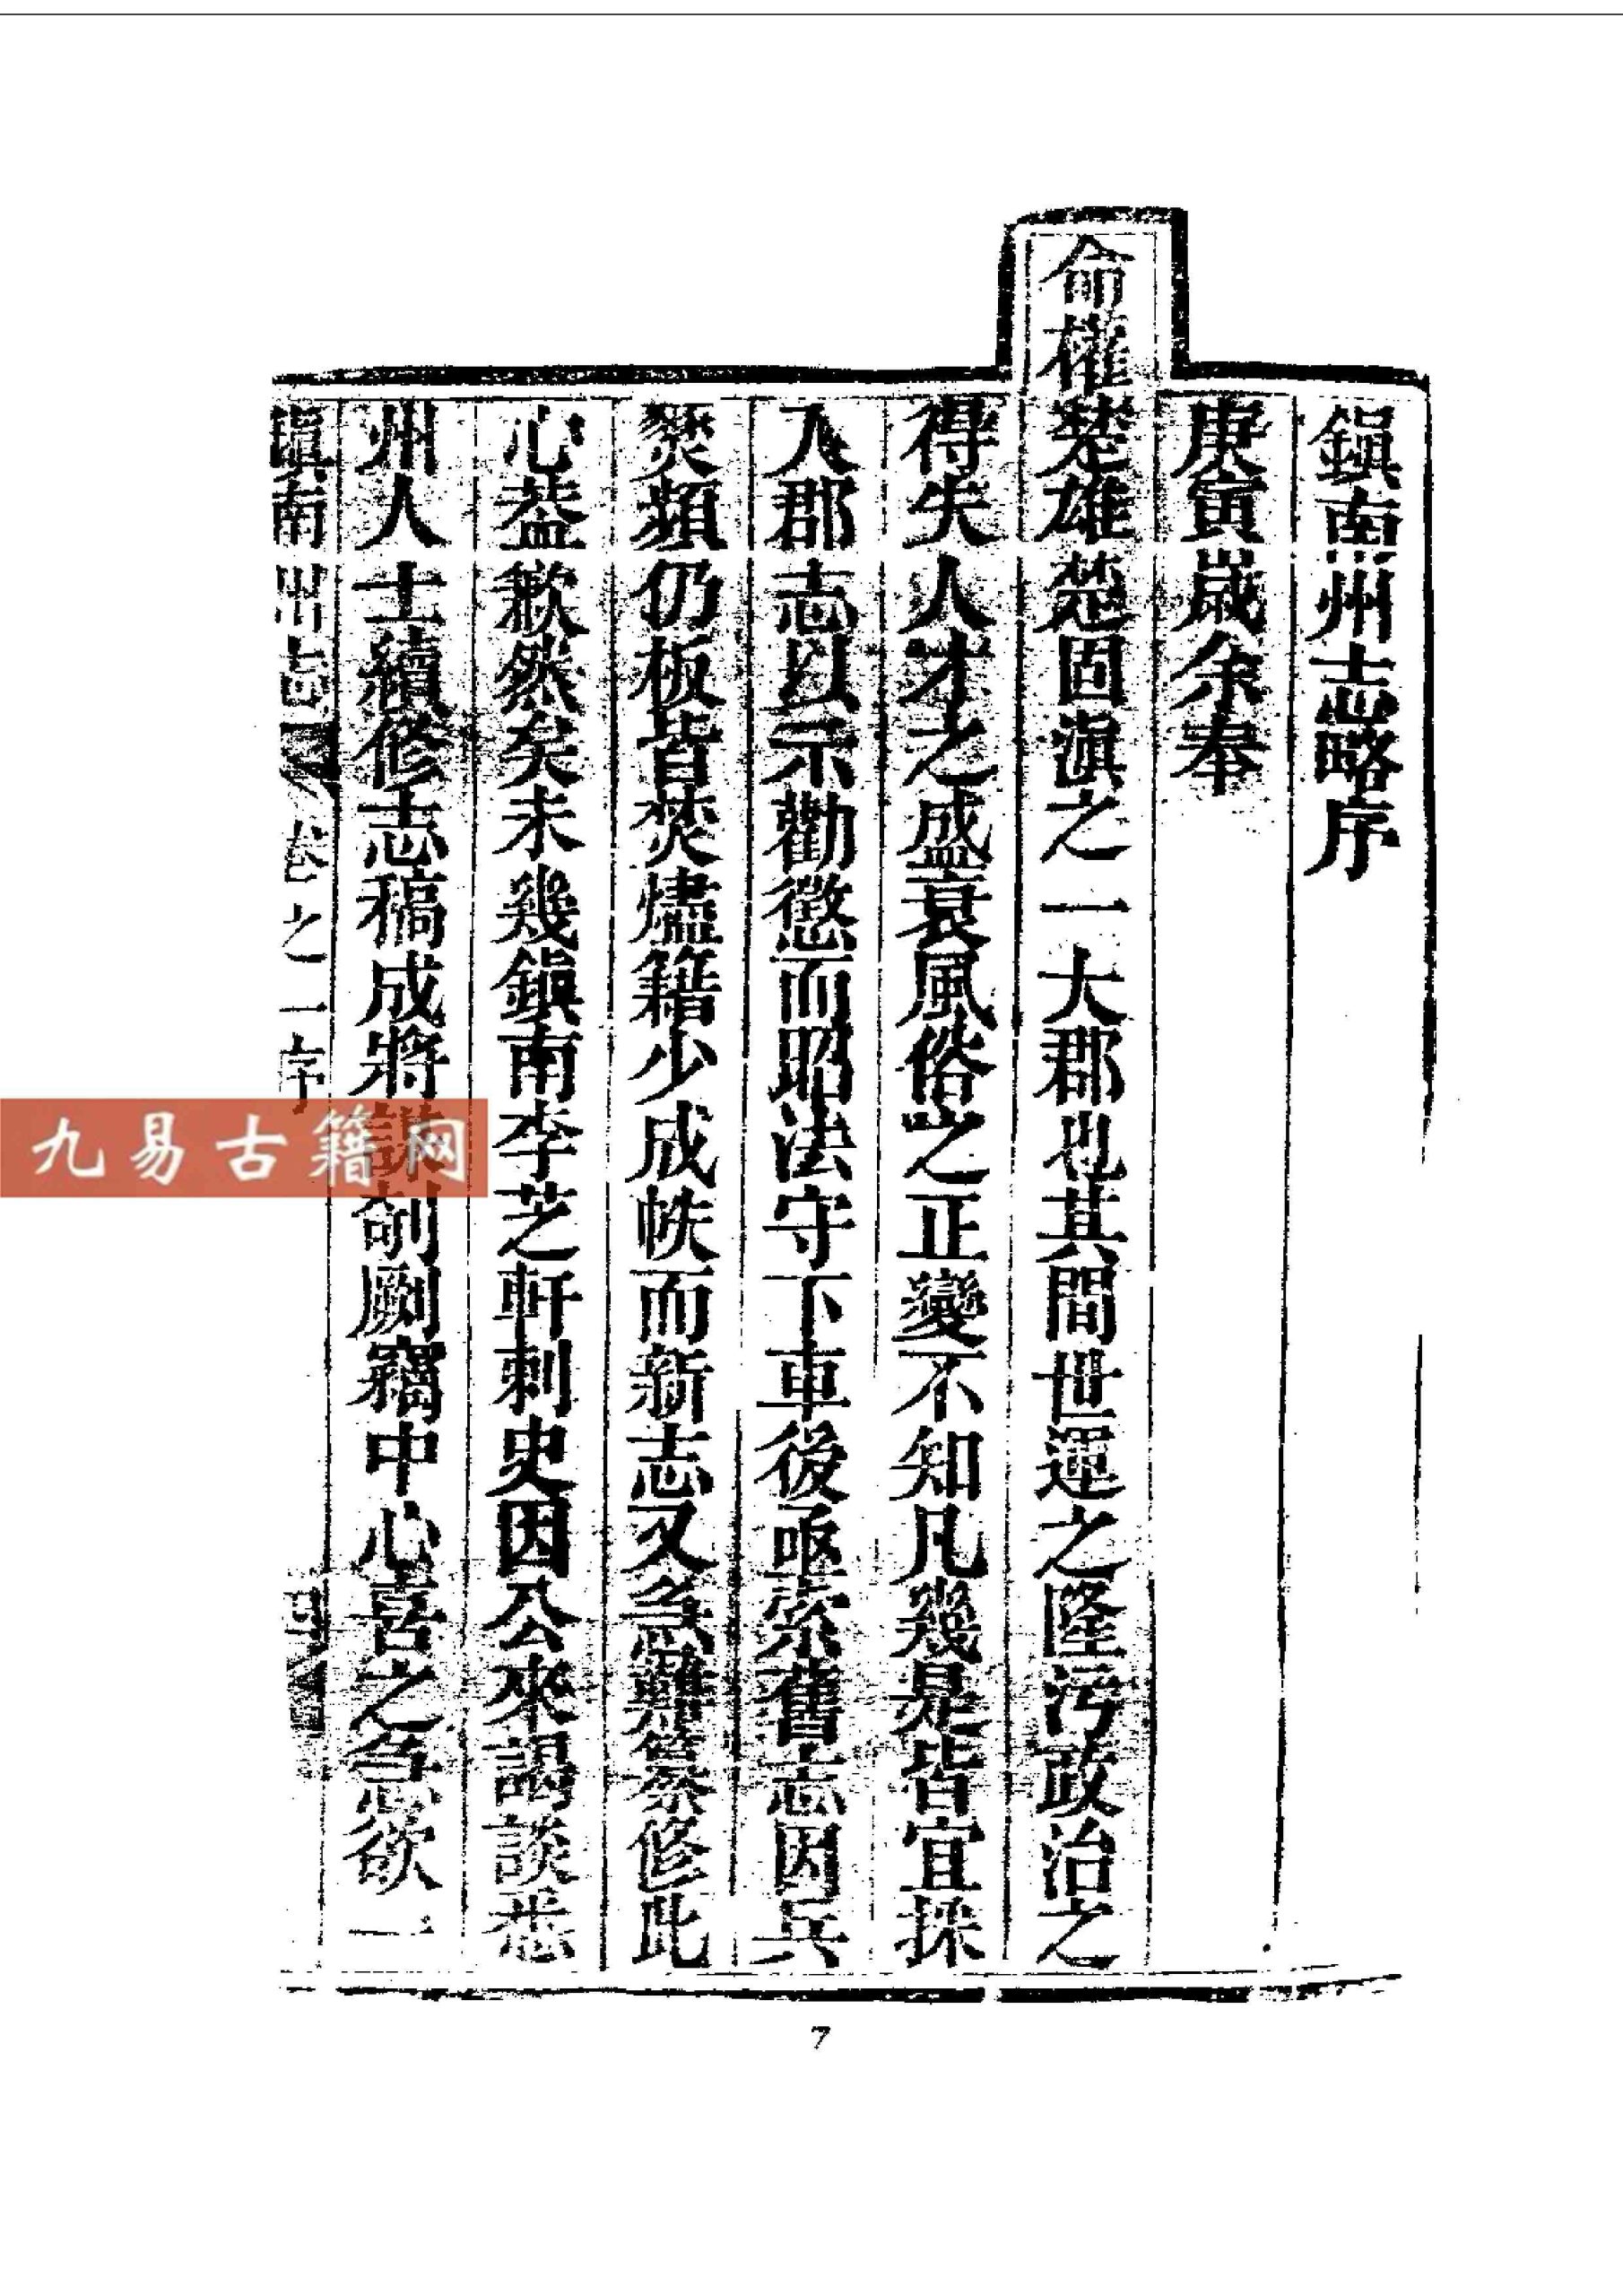 鎮南州志略序
庚寅歲余奉
命權楚雄楚固滇之一大郡也其間世運之隆污政治之
得失人才之盛衰風俗之正變不知凡幾是皆宜採
入郡志以示勸懲而昭法守下車後亟索舊志因兵
燹頻仍板皆焚燼籍少成帙而新志又急難纂修此
心葢歉然矣未幾鎮南李芝軒刺史因公來謁談悉
州人士續修志稿成將謀剞劂竊中心喜之急欲一
鎮南州志 卷之一序 四
九易古籍网
7